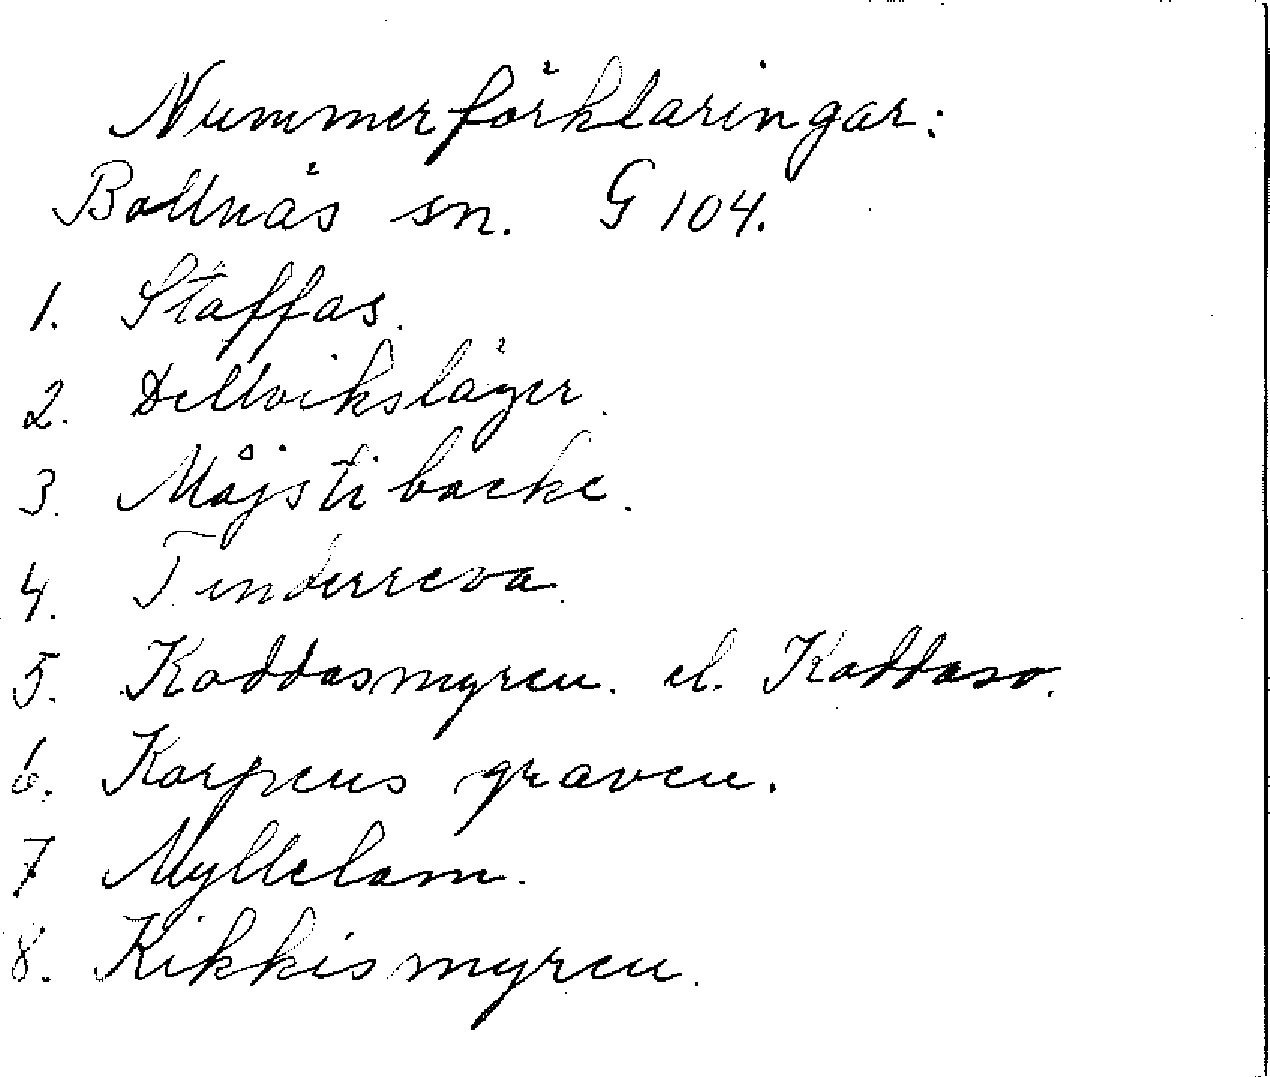 Nummerförklaringar:
Bollnäs sn. G 104.
1. Staffas.
2. Dellviksläger.
3. Måjsti backe.
4. Tenderreva.
5. Koddasmyren. el. Koddaso.
6. Korpens graven.
7 Myllelam.
8. Kikkismyren.